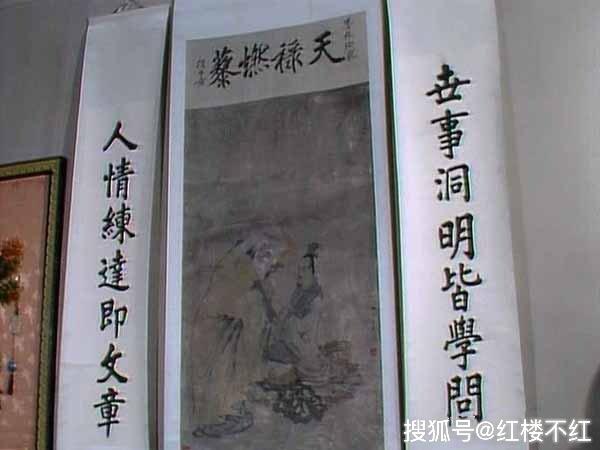 天祿燃藜
世事洞明皆學問
人情練達即文章
搜狐号@红楼不红